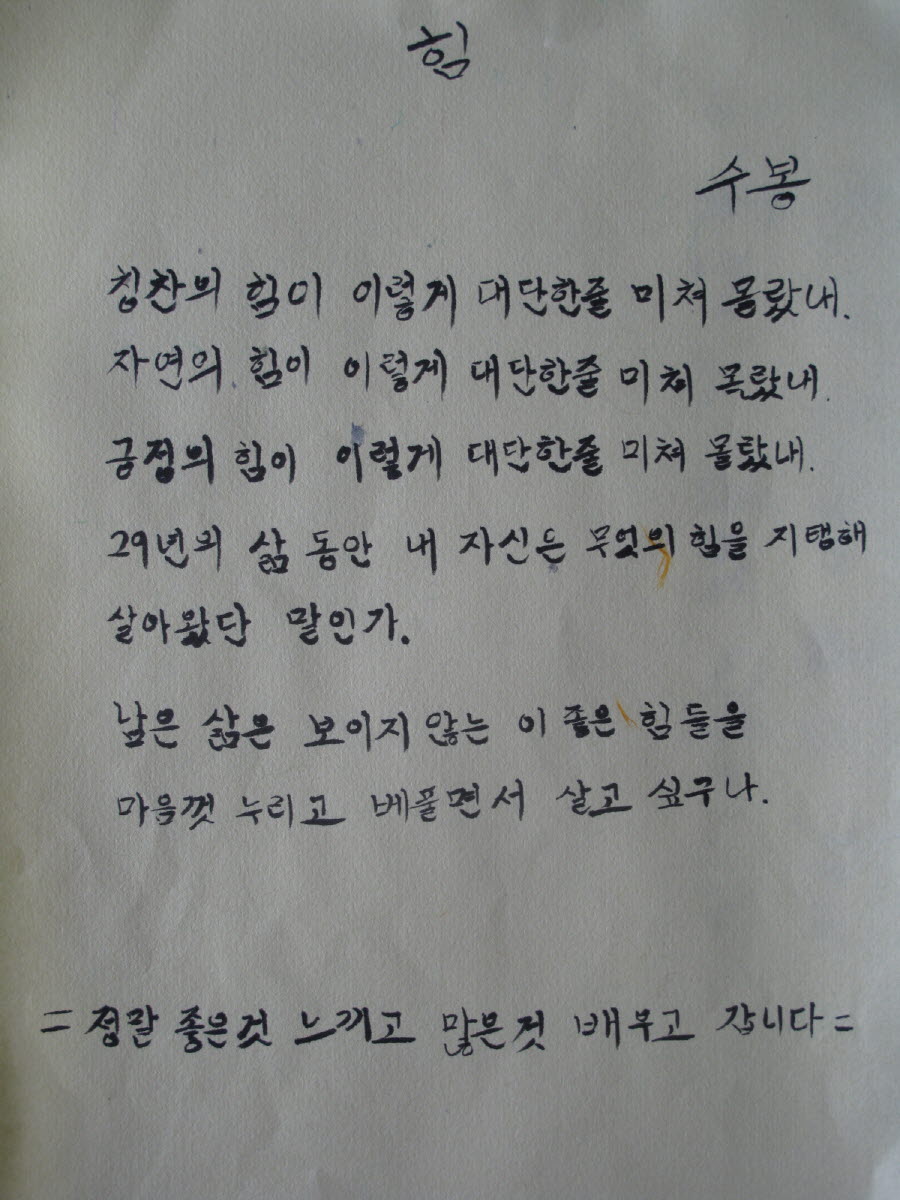 힘
수봉
칭찬의 힘이 이렇게 대단한줄 미쳐 몰랐내.
자연의 힘이 이렇게 대단한줄 미쳐 몰랐내.
긍정의 힘이 이렇게 대단한줄 미쳐 몰랐내.
29년의 삶 동안 내 자신은 무엇의 힘을 지탬해
살아왔단 말인가.
남은 삶은 보이지 않는 이 좋은 힘들을
마음껏 누리고 베풀면서 살고 싶구나.
= 정말 좋은것 느끼고 많은것 배우고 갑니다 =